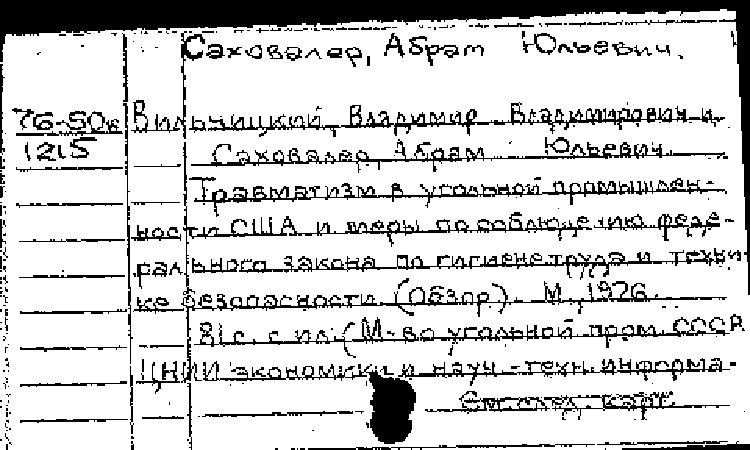 Саховалер, Абрам Юльевич.
76-50к Вильчицкий, Владимир Владимирович и
1215 Саховалер, Абрам Юльевич.
Травматизм в угольной промышлен-
ности США и меры по соблюдению феде-
рального закона по гигиене труда и техни-
ке безопасности. (Обзор). М., 1976.
81с. с ил. (М-во угольной пром. СССР
ЦНИИ экономики и науч.-техн. информа-
См. след. карт.